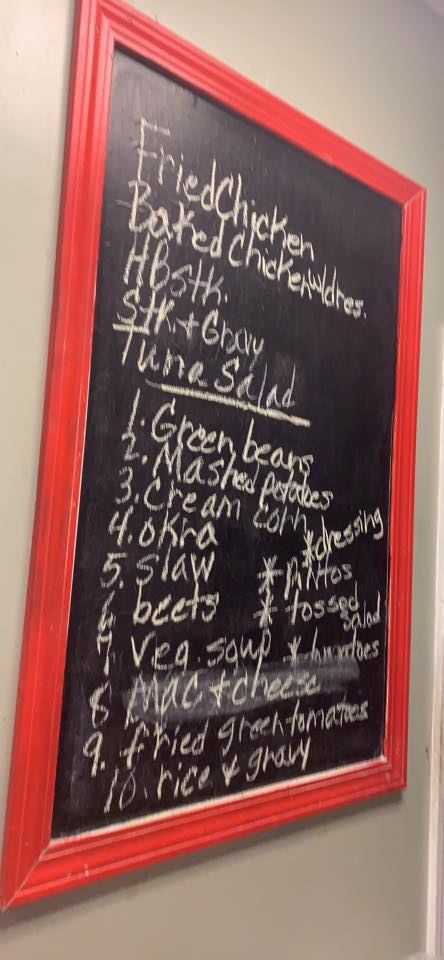 Fried Chicken
Baked Chicken w/dres.
HB Stk.
Stk. + Gravy
Tuna Salad
1. Green beans
2. Mashed potatoes
3. Cream Corn
4. okra
*dressing
5. Slaw
* pintos
6 beets
* tossed salad
7 Veg. soup
* tomatoes
8 Mac + cheese
9. fried green tomatoes
10. rice & gravy